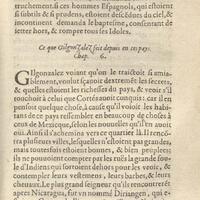 truchement.si ces hommes Espagnols, qui estoient
si subtils & si prudens, estoient descēdus du ciel, &
incontinent demanda le baptesme, consentant de
ietter hors, & rompre tous ses Idoles.
Ce que Gilgonzalez feit depuis en ces pays.
Chap. 6.
GIlgonzalez voiant qu'on le traictoit si amia-
blement, voulut sçauoir dextremēt les secrets,
& quelles estoient les richesses du pays, & veoir s'il
touchoit à celuy que Cortés auoit conquis: car il en
peut sentir quelque chose à cause qu'il voioit les habi-
tans de ce pays ressembler en beaucoup de choses à
ceux de Mexicque, selon les nouuelles qu'il en auoit
oui. Ainsi il s'achemina vers ce quartier là. Il rencō-
tra plusieurs villes, lesquelles n'estoient pas grandes,
mais toutesfois estoient bonnes, & bien peuplees
on ne pouuoit pas marcher par les rues à la grande fou-
le d'Indiens qui trottoient apres pour les veoir, & con-
templer leurs vestemens, leurs barbes, & leurs
cheuaux. Le plus grand seigneur qu'ils rencontrerent
apres Nicaragua, fut vn nommé Diriangen, qui e-